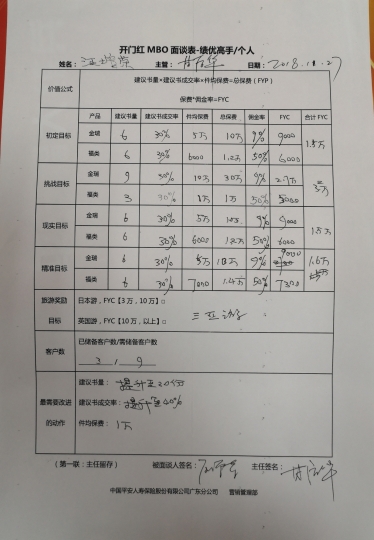 开门红 MBO 面谈表-绩优高手/个人
姓名： 主管： 日期：2018.11.27
价值公式
建议书量×建议书成交率×件均保费=总保费（FYP）
保费*佣金率=FYC
产品 建议书量 建议书成交率 件均保费 总保费 佣金率 FYC 合计 FYC
初定目标 金瑞 6 30% 5万 10万 9% 9000 1.5万
福类 6 30% 6000 1.2万 50% 6000
挑战目标 金瑞 9 30% 10万 30万 9% 2.7万 3万
福类 3 30% 1万 1万 50% 5000
现实目标 金瑞 6 30% 5万 10万 9% 9000 1.5万
福类 6 30% 6000 1.2万 50% 6000
精准目标 金瑞 6 30% 5万 10万 9% 9000 1.6万
福类 6 30% 7000 1.4万 50% 7300
旅游奖励
目标
日本游，FYC【3万，10万】□
英国游，FYC【10万，以上】□
三亚游
客户数
已储备客户数/需储备客户数
3 / 9
最需要改进
的动作
建议书量：提升至20份
建议书成交率：提升至40%
件均保费：1万
（第一联：主任留存） 被面谈人签名： 主任签名：
中国平安人寿保险股份有限公司广东分公司 营销管理部